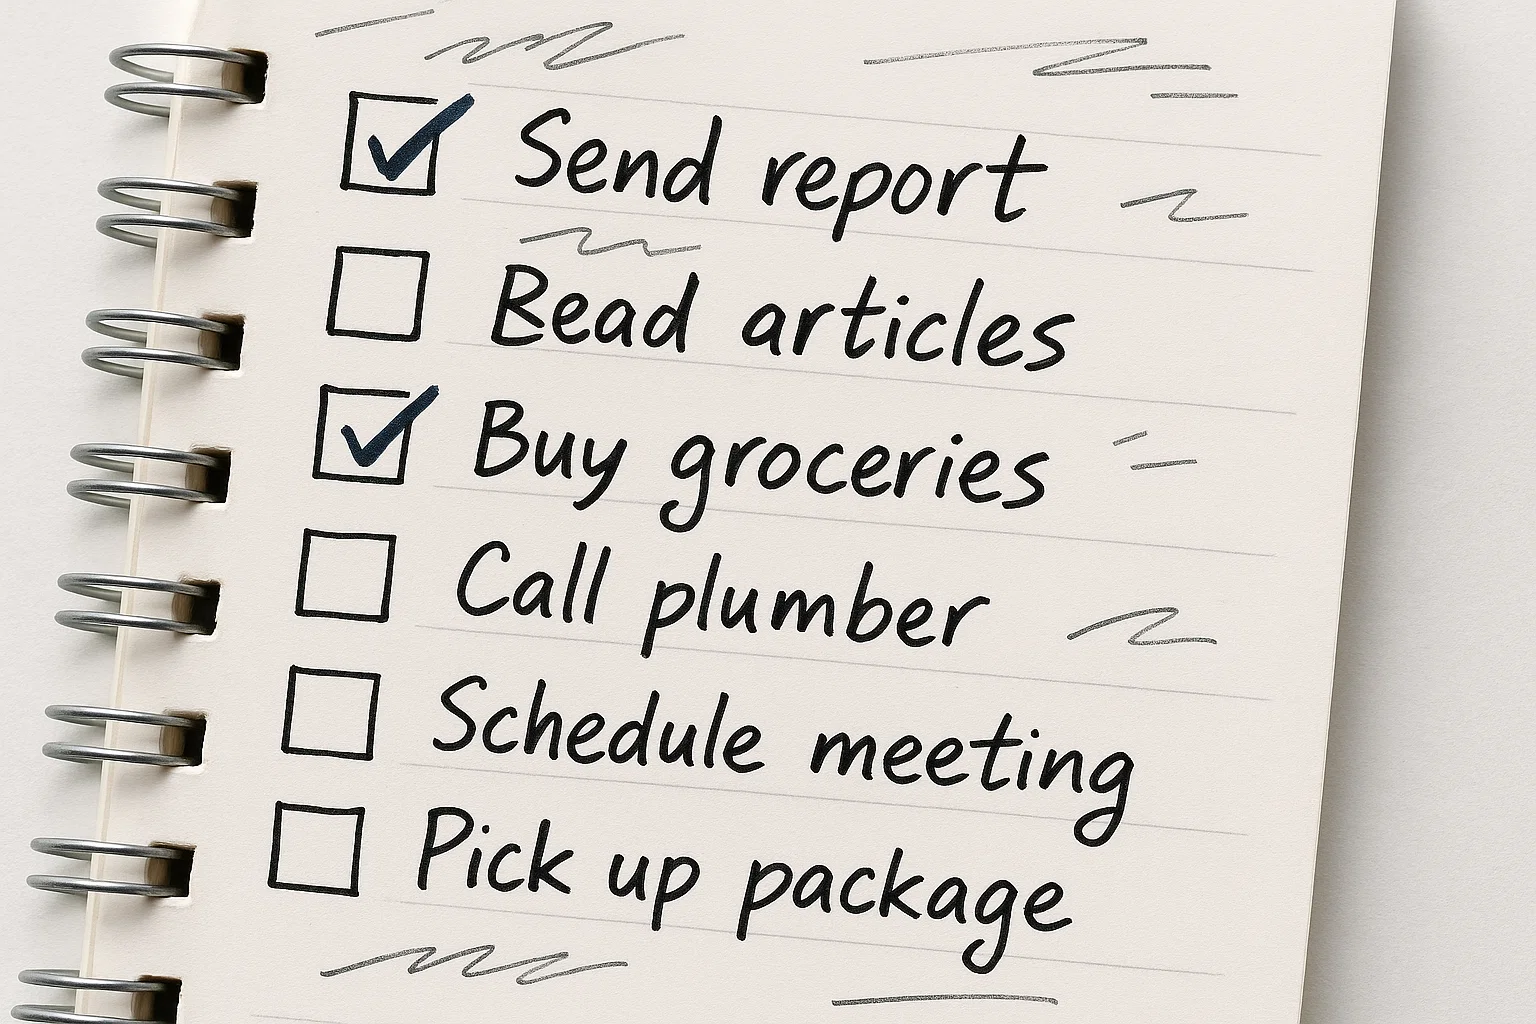 Send report
Bead articles
Buy groceries
Call plumber
Schedule meeting
Pick up package